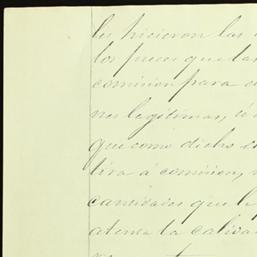 les hicieron las
los jueces que dan
comision para
nes legitimas,
que como dicho
tiva á comision,
cantidades que le
atenta la calida